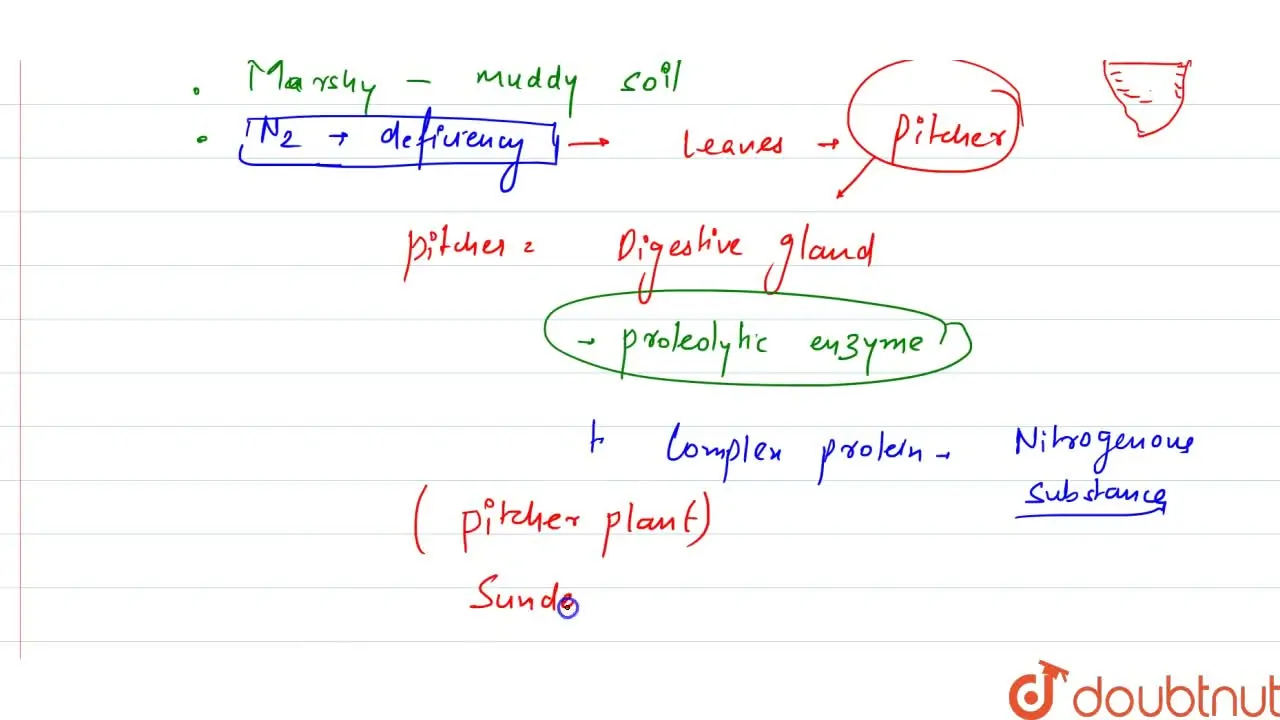 . Marshy - muddy soil
. N2 → deficiency → leaves → Pitcher
pitcher = Digestive gland
→ proteolytic enzyme
+ Complex protein → Nitrogenous
substance
(pitcher plant)
Sunde
doubtnut